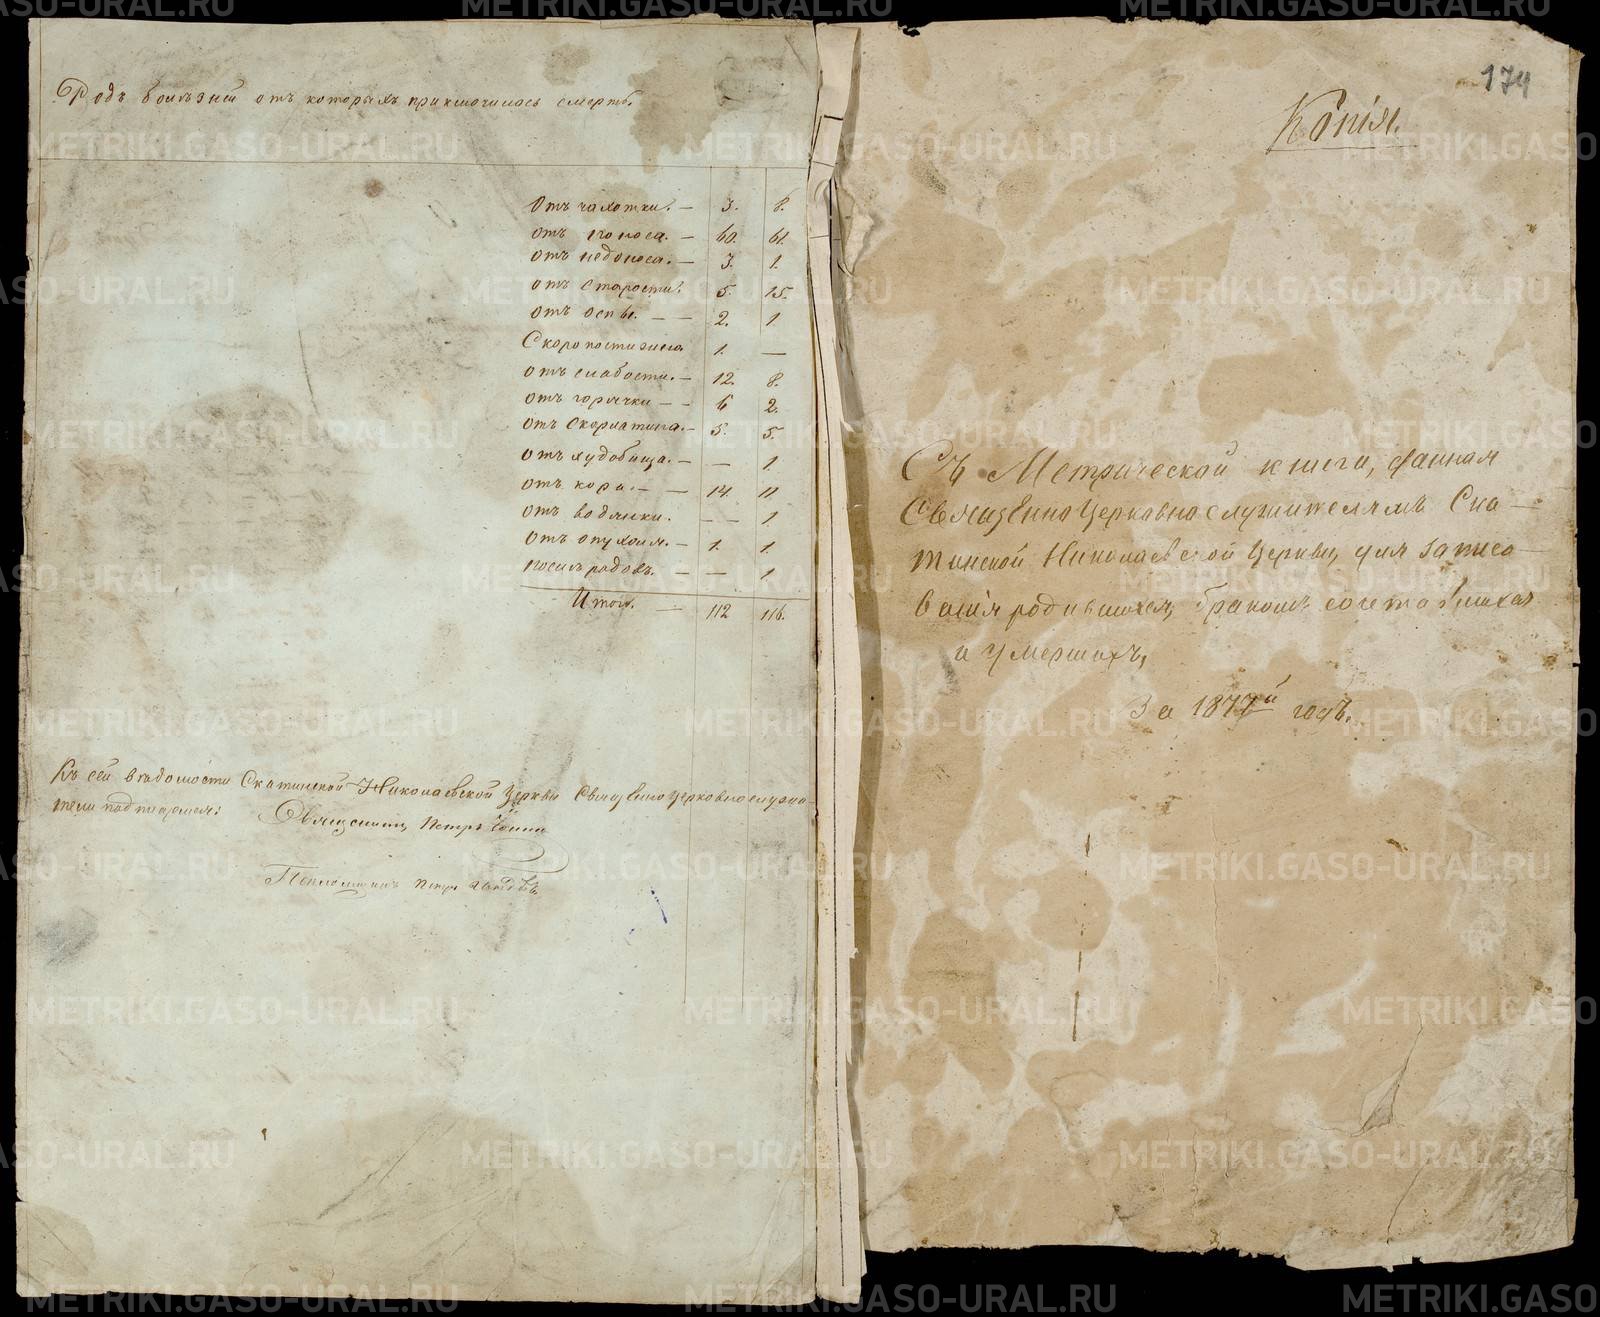 Родъ болѣзней отъ которыхъ приключилось смерть.
Отъ чахотки. — 3. 8.
отъ поноса. — 60. 61.
отъ недоноса. — 3. 1.
отъ старости. 5. 15.
отъ оспы. — — 2. 1
Скоропостижно 1. —
отъ слабости. — 12. 8.
отъ горячки — — 6 2.
отъ скорлатина. — 5. 5.
отъ худобища. — — 1
отъ кори. — — 14. 11
отъ водянки. — — 1.
отъ опухоли. — 1. 1.
послѣ родовъ. — — 1
Итого. — 112 116.
Къ сей вѣдомости Скатинской Николаевской Церкви Священноцерковнослужи
тели подписуемся:
Священникъ Петръ
Псаломщикъ Петръ
174
Копія.
Съ Метрической книги, данная
Священно Церковно служителямъ Ска—
тинской Николаевской Церкви, для записо—
ванія родившихся, бракомъ сочетавшихся
и умершихъ,
За 1877й годъ.
METRIKI.GASO-URAL.RU